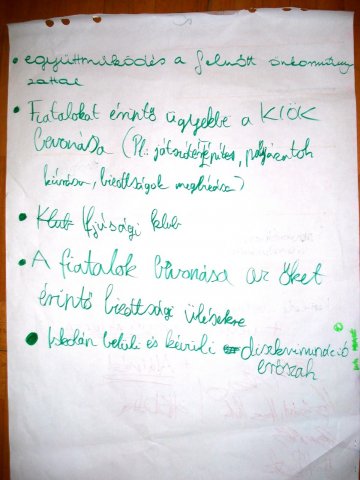 • együttműködés a felnőtt önkormány
zattal
• Fiatalokat érintő ügyekbe a KIÖK
bevonása (Pl.: játszótérépítés, pályázatok
kiírása, bizottságok megbízása)
• Klub Ifjúsági klub
• A fiatalok bevonása az őket
érintő bizottsági ülésekre
• Iskolán belüli és kívüli diszkrimináció
erőszak